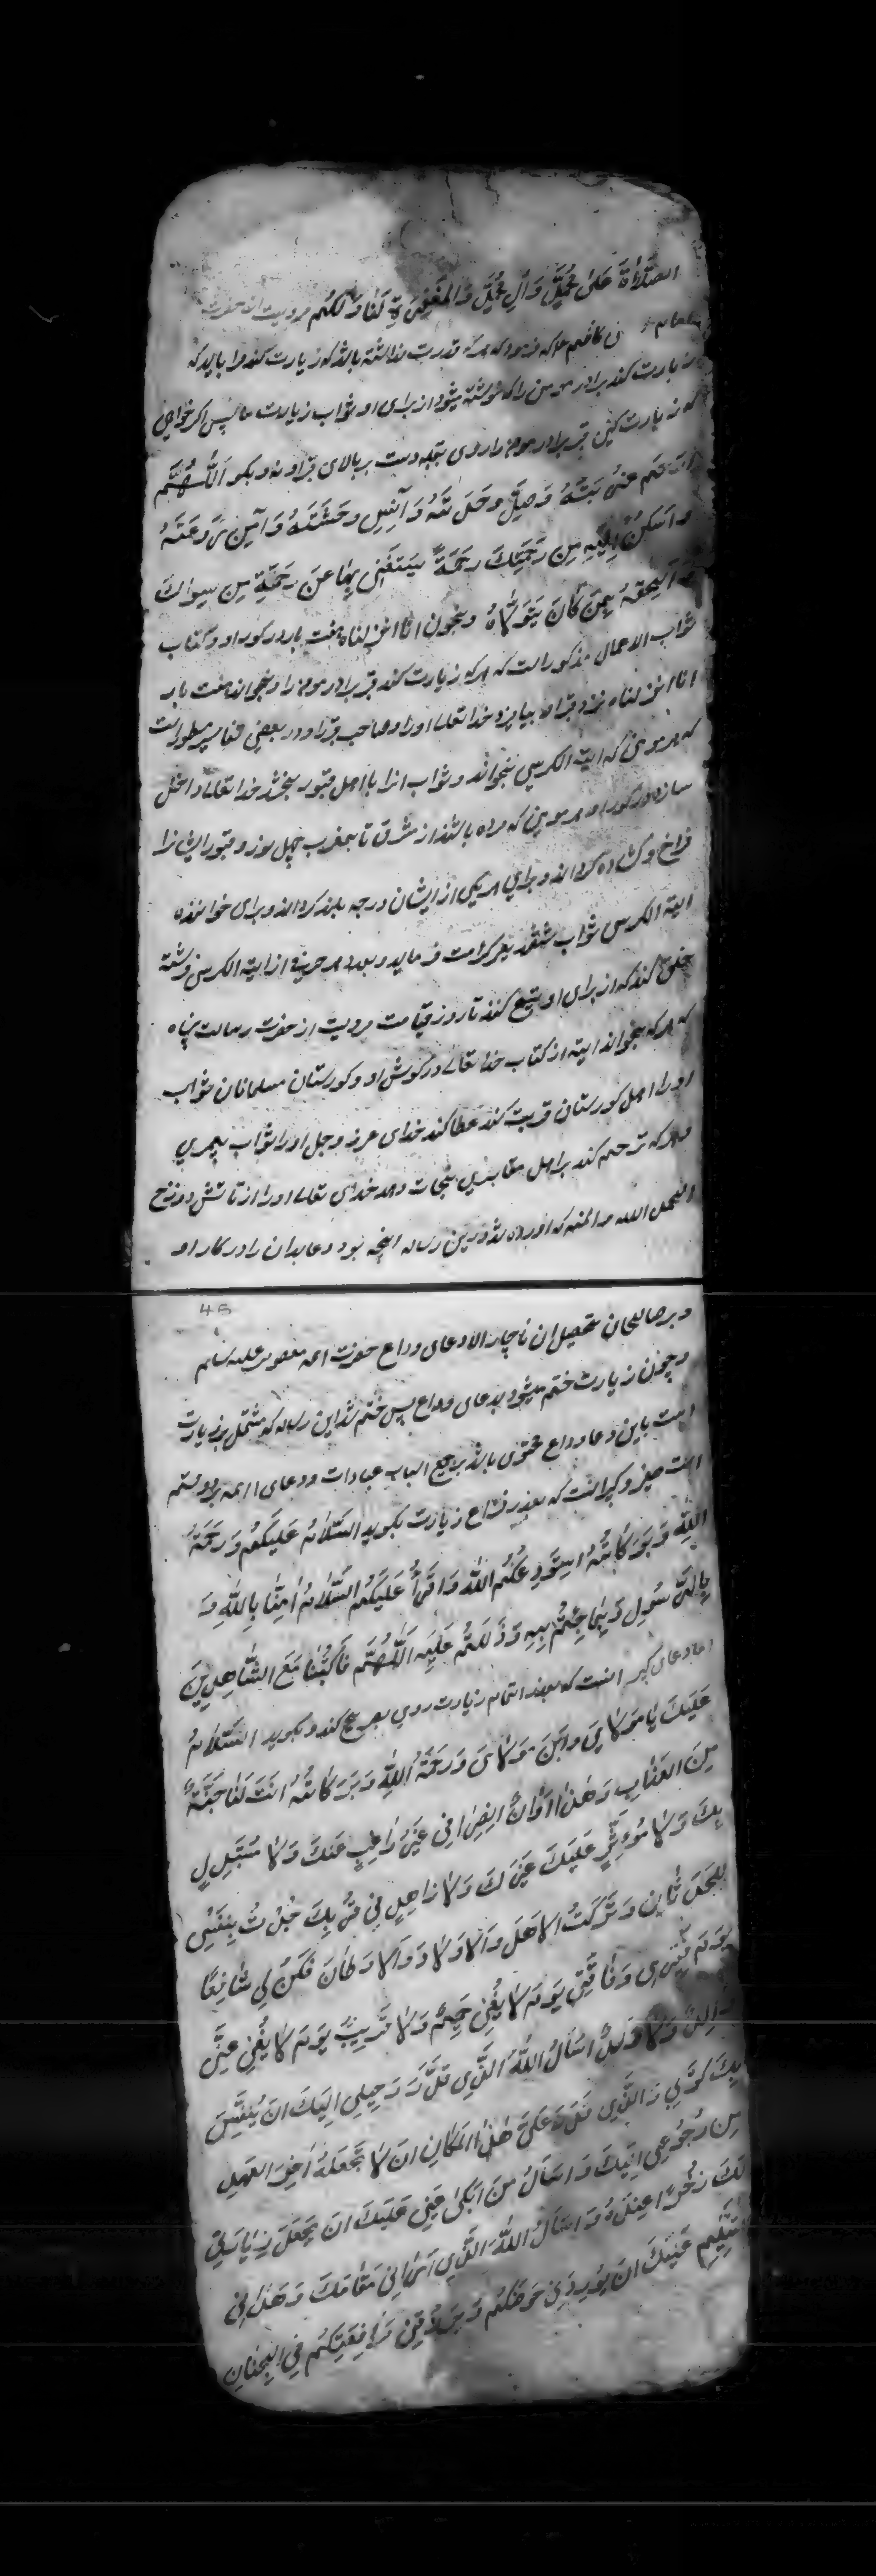 الصَّلٰوةُ عَلیٰ مُحَمَّدٍ وَآلِ مُحَمَّدٍ وَالمَغْفِرَةِ لَنَا وَلَكُم مرویست از حضرت
کاظم که فرمود که هرکه قدرت نداشته باشد که زیارت کند مرا باید که
زیارت کند برادر مومن را که نوشته میشود از برای او ثواب زیارت ما پس اگر خواهی
که زیارت کنی قبر برادر مومن را روی بقبله دست بر بالای قبر او نه و بکو اَللّٰهُمَّ
ارحَم غُربَتَهُ وَصِل وَحدَتَهُ وَآنِس وَحشَتَهُ وَآمِن رَوعَتَهُ
وَاَسكِن اِلَيهِ مِن رَحمَتِكَ رَحمَةً يَستَغنِي بِهَا عَن رَحمَةِ مِن سِوَاكَ
وَ اَلحِقهُ بِمَن كَانَ يَتَوَلَّاهُ و بخوان انا انزلناه هفت بار در کور او و کتاب
ثواب الاعمال مذکور است که هرکه زیارت کند قبر برادر مومن را و بخواند هفت بار
انا انزلناه نزد قبر او بیامرزد خدا تعالی او را و صاحب قبر را و در بعضی تفاسیر مسطور است
که هر مومنی که ایة الکرسی بخواند و ثواب انرا با اهل قبور بخشد خدا تعالی داخل
سازد در کور او هر مومنی که مرده باشد از مشرق تا بمغرب چهل نور و قبور ایشانرا
فراخ و کشاده کرداند و برای هر یکی از ایشان درجه بلند کرداند و برای خواننده
ایة الکرسی ثواب شصت پیغمبر کرامت فرماید و بعدد هر حرفی از ایة الکرسی فرشته
خلق کند که از برای او تسبیح کند تا روز قیامت مرویست از حضرت رسالت پناه
که هرکه بخواند ایة از کتاب خدا تعالی در کوش او و کورستان مسلمانان ثواب
او را اهل کورستان قربت کند عطا کند خدای عز و جل او را ثواب پیمبری
و هرکه ترحم کند بر اهل مقابر نجات دهد خدای تعالی او را از آتش دوزخ
الحمد لله و المنه که آورده شد درین رساله انچه بود و عابدان را در کار او
46
و بر صالحان تحصیل ان ناچار الا دعای وداع حضرت ائمه معصومین علیه سلم
و چون زیارت ختم میشود بدعای وداع پس ختم شد این رساله که مشتمل بر زیارت
است باین دعا وداع محتوی باشد بر جمیع الباب عبادات و دعای ائمه بر دو قسم
است صغیر و کبیر انست که بعد از فراغ زیارت بکوید اَلسَّلَامُ عَلَيكُم وَرَحمَةُ
اللهِ وَبَرَكَاتُهُ اَستَودِعُكُمُ اللهَ وَاَقرَأُ عَلَيكُمُ السَّلَامُ اٰمَنَّا بِاللهِ وَ
بِالرَّسُولِ وَبِمَا جِئتُم بِهِ وَدَلَلتُم عَلَيهِ اَللّٰهُمَّ فَاكتُبنَا مَعَ الشَّاهِدِينَ
اما دعای کبیر انست که بعد اتمام زیارت روی بضریح کند و بکوید اَلسَّلَامُ
عَلَيكَ يَا مَولَايَ وَابنَ مَولَايَ وَرَحمَةُ اللهِ وَبَرَكَاتُهُ اَنتَ لَنَا جُنَّةٌ
مِنَ العَذَابِ وَهٰذَا اَوَانُ انصِرَافِي غَيرَ رَاغِبٍ عَنكَ وَلَا مُستَبدِلٍ
بِكَ وَلَا مُؤثِرٍ عَلَيكَ غَيرَكَ وَلَا زَاهِدٍ فِي قُربِكَ جُدتُ بِنَفسِي
لِلحَدَثَانِ وَتَرَكتُ الاَهلَ وَالاَولَادَ وَالاَوطَانَ فَكُن لِي شَافِعًا
يَومَ فَقرِي وَفَاقَتِي يَومَ لَا يُغنِي حَمِيمٌ وَلَا قَرِيبٌ يَومَ لَا يُغنِي عَنِّي
وَالِدٌ وَلَا وَلَدٌ اَسأَلُ اللهَ الَّذِي قَدَّرَ رَحِيلِي اِلَيكَ اَن يُنَفِّسَ
بِكَ كَربِي وَالَّذِي قَدَّرَ عَلَيَّ هٰذَا المَكَانِ اَن لَا يَجعَلَهُ اٰخِرَ العَهدِ
مِن رُجُوعِي اِلَيكَ وَاَسأَلُ مَن اَبكىٰ عَينِي عَلَيكَ اَن يَجعَلَ زِيَارَتِي
لَكَ ذُخرًا عِندَهُ وَ اَسأَلُ اللهَ الَّذِي اَرَانِي مَقَامَكَ وَهَدَانِي
لِلتَّسلِيمِ عَلَيكَ اَن يُورِدَنِي حَوضَكُم وَيَرزُقَنِي مُرَافَقَتَكُم فِي الجِنَانِ